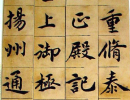 重脩泰
正殿記
上御極
揚州通